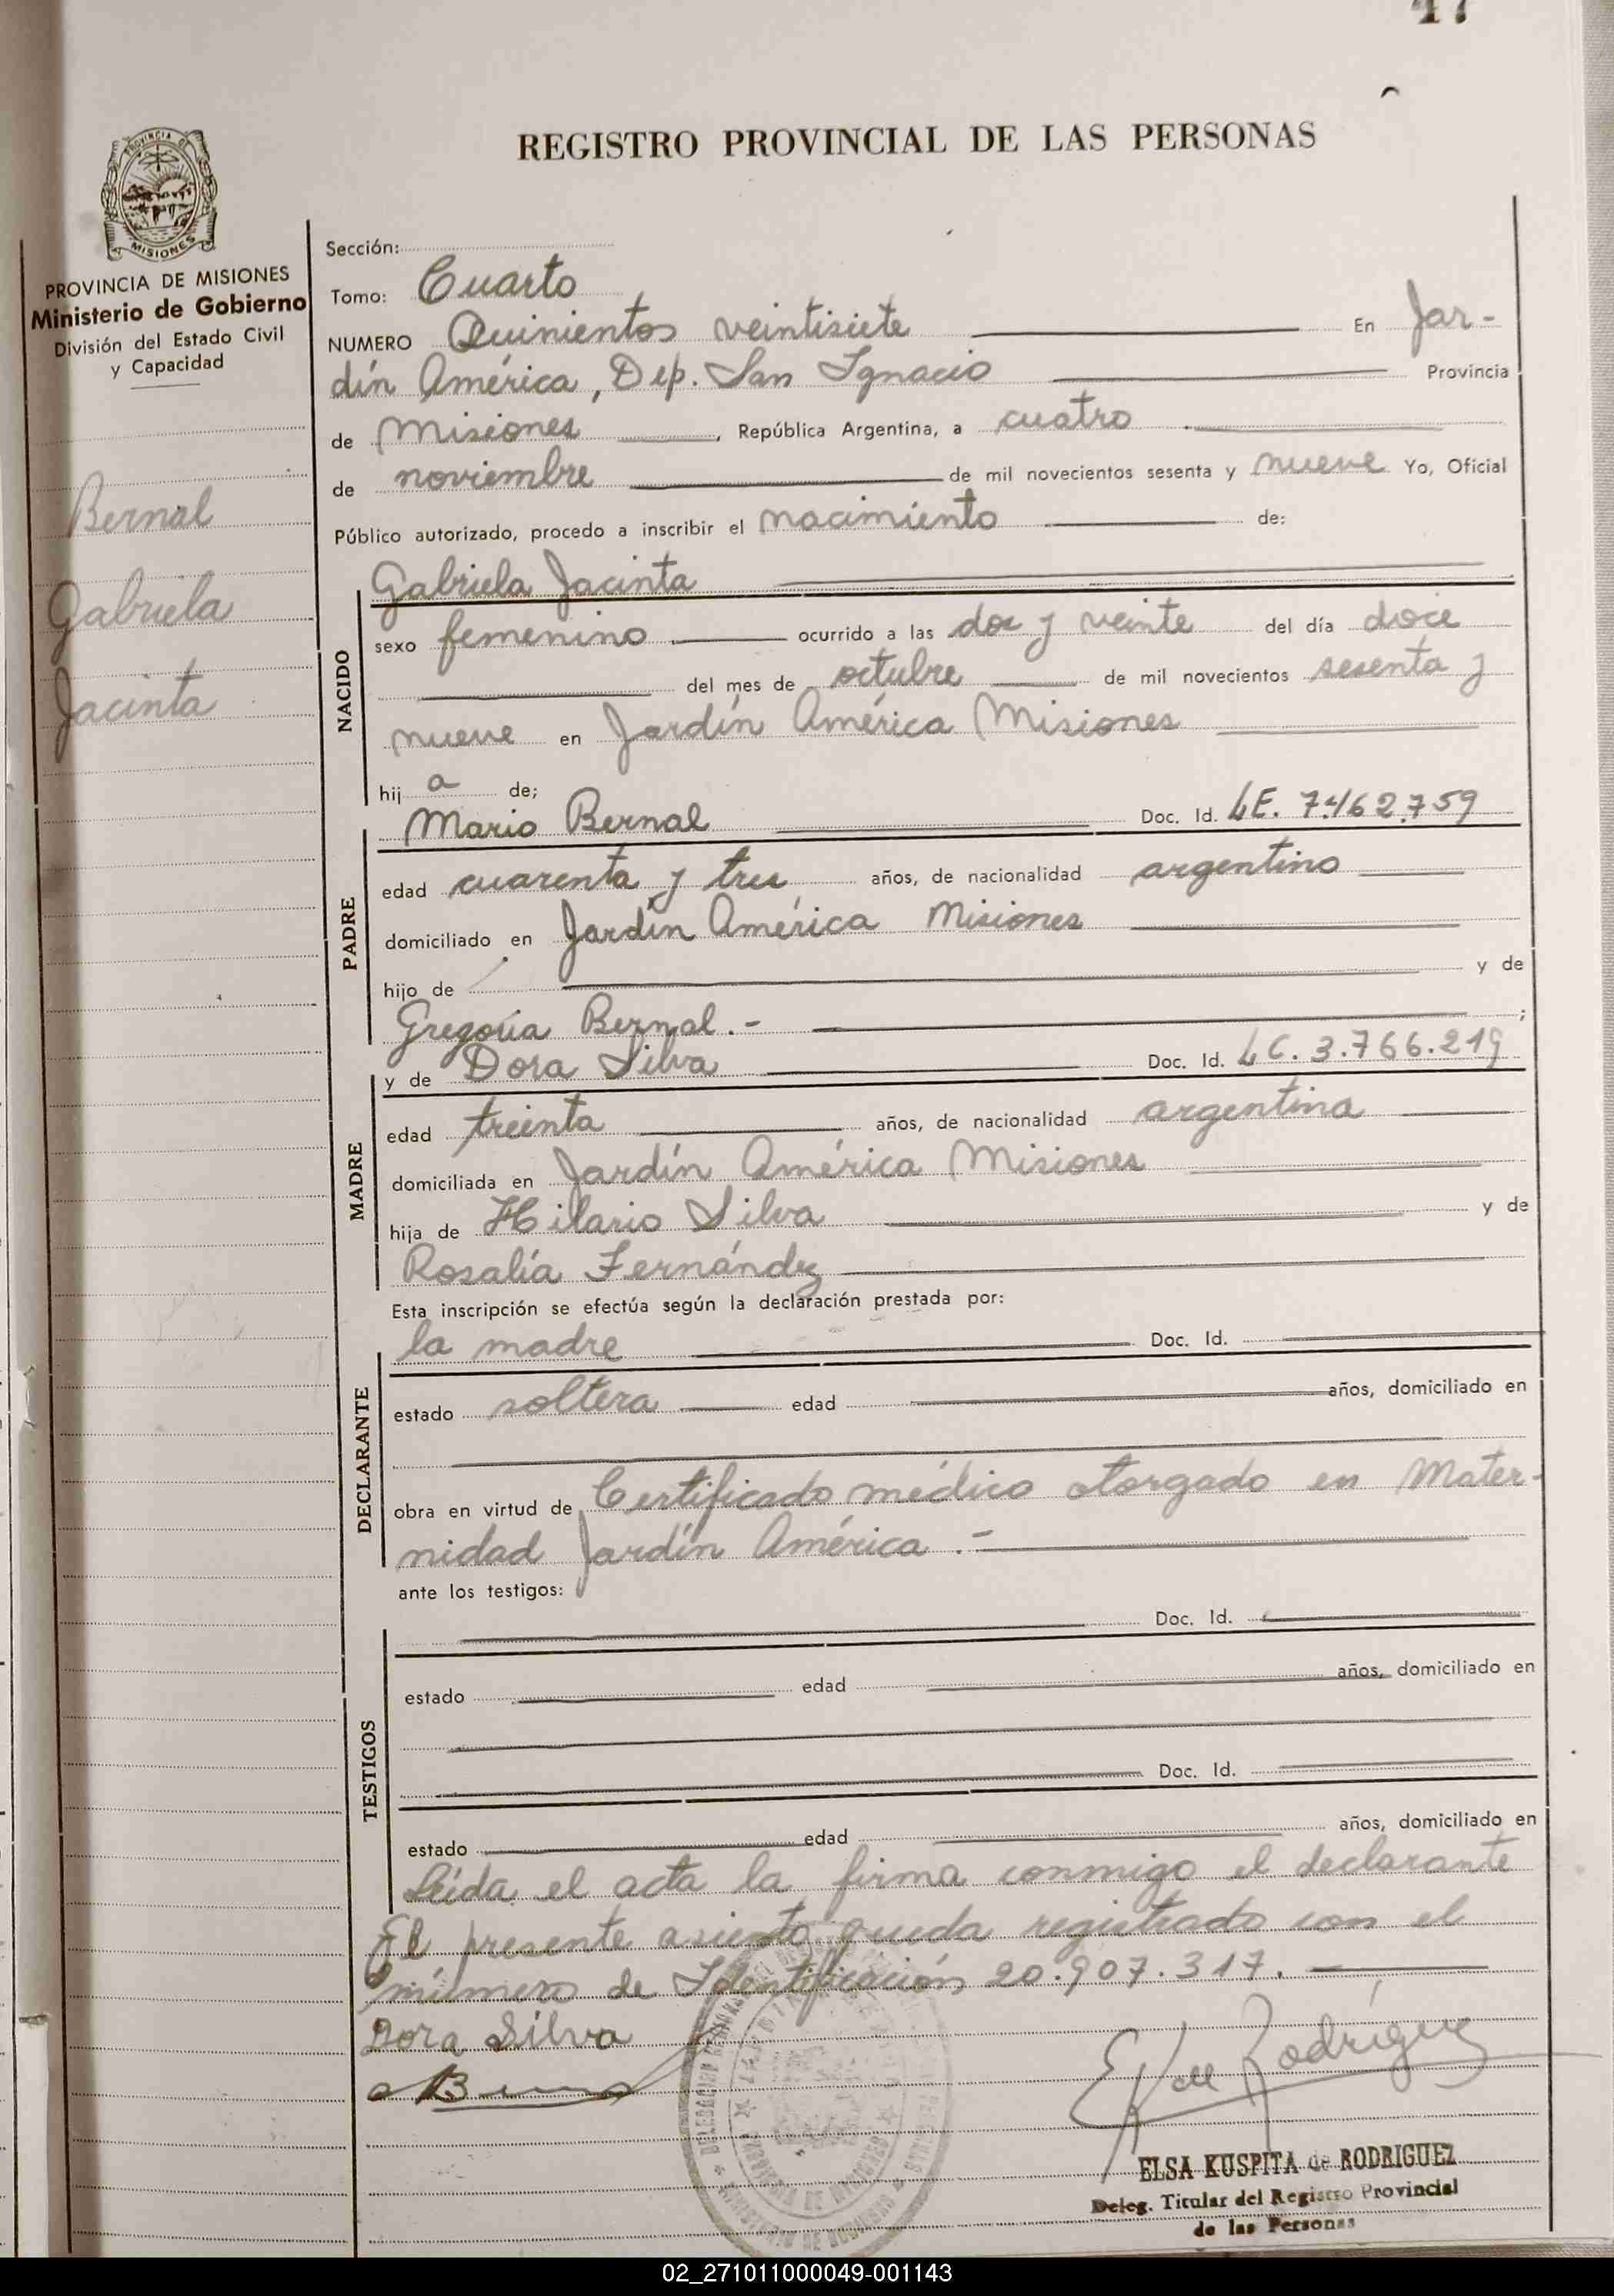 47
REGISTRO PROVINCIAL DE LAS PERSONAS
PROVINCIA DE
MISIONES
PROVINCIA DE MISIONES
Ministerio de Gobierno
División del Estado Civil
y Capacidad
Bernal
Gabriela
Jacinta
Sección:
Tomo: Cuarto
NUMERO Quinientos veintisiete En Jar-
dín América, Dep. San Ignacio Provincia
de Misiones, República Argentina, a cuatro
de noviembre de mil novecientos sesenta y nueve Yo, Oficial
Público autorizado, procedo a inscribir el nacimiento de:
NACIDO
Gabriela Jacinta
sexo femenino ocurrido a las doce y veinte del día doce
del mes de octubre de mil novecientos sesenta y
nueve en Jardín América Misiones
hij a de;
PADRE
Mario Bernal Doc. Id. LE. 7.462.759
edad cuarenta y tres años, de nacionalidad argentino
domiciliado en Jardín América Misiones
hijo de y de
Gregoria Bernal.- ;
MADRE
y de Dora Silva Doc. Id. LC. 3.766.219
edad treinta años, de nacionalidad argentina
domiciliada en Jardín América Misiones
hija de Hilario Silva y de
Rosalía Fernández
Esta inscripción se efectúa según la declaración prestada por:
DECLARANTE
la madre Doc. Id.
estado soltera edad años, domiciliado en
obra en virtud de Certificado médico otorgado en Mater-
nidad Jardín América.-
ante los testigos:
TESTIGOS
Doc. Id.
estado edad años, domiciliado en
Doc. Id.
estado edad años, domiciliado en
Leída el acta la firma conmigo el declarante
El presente asiento queda registrado con el
número de Identificación 20.907.317.
Dora Silva
E K de Rodríguez
ELSA KUSPITA de RODRIGUEZ
Deleg. Titular del Registro Provincial
de las Personas
02_271011000049-001143